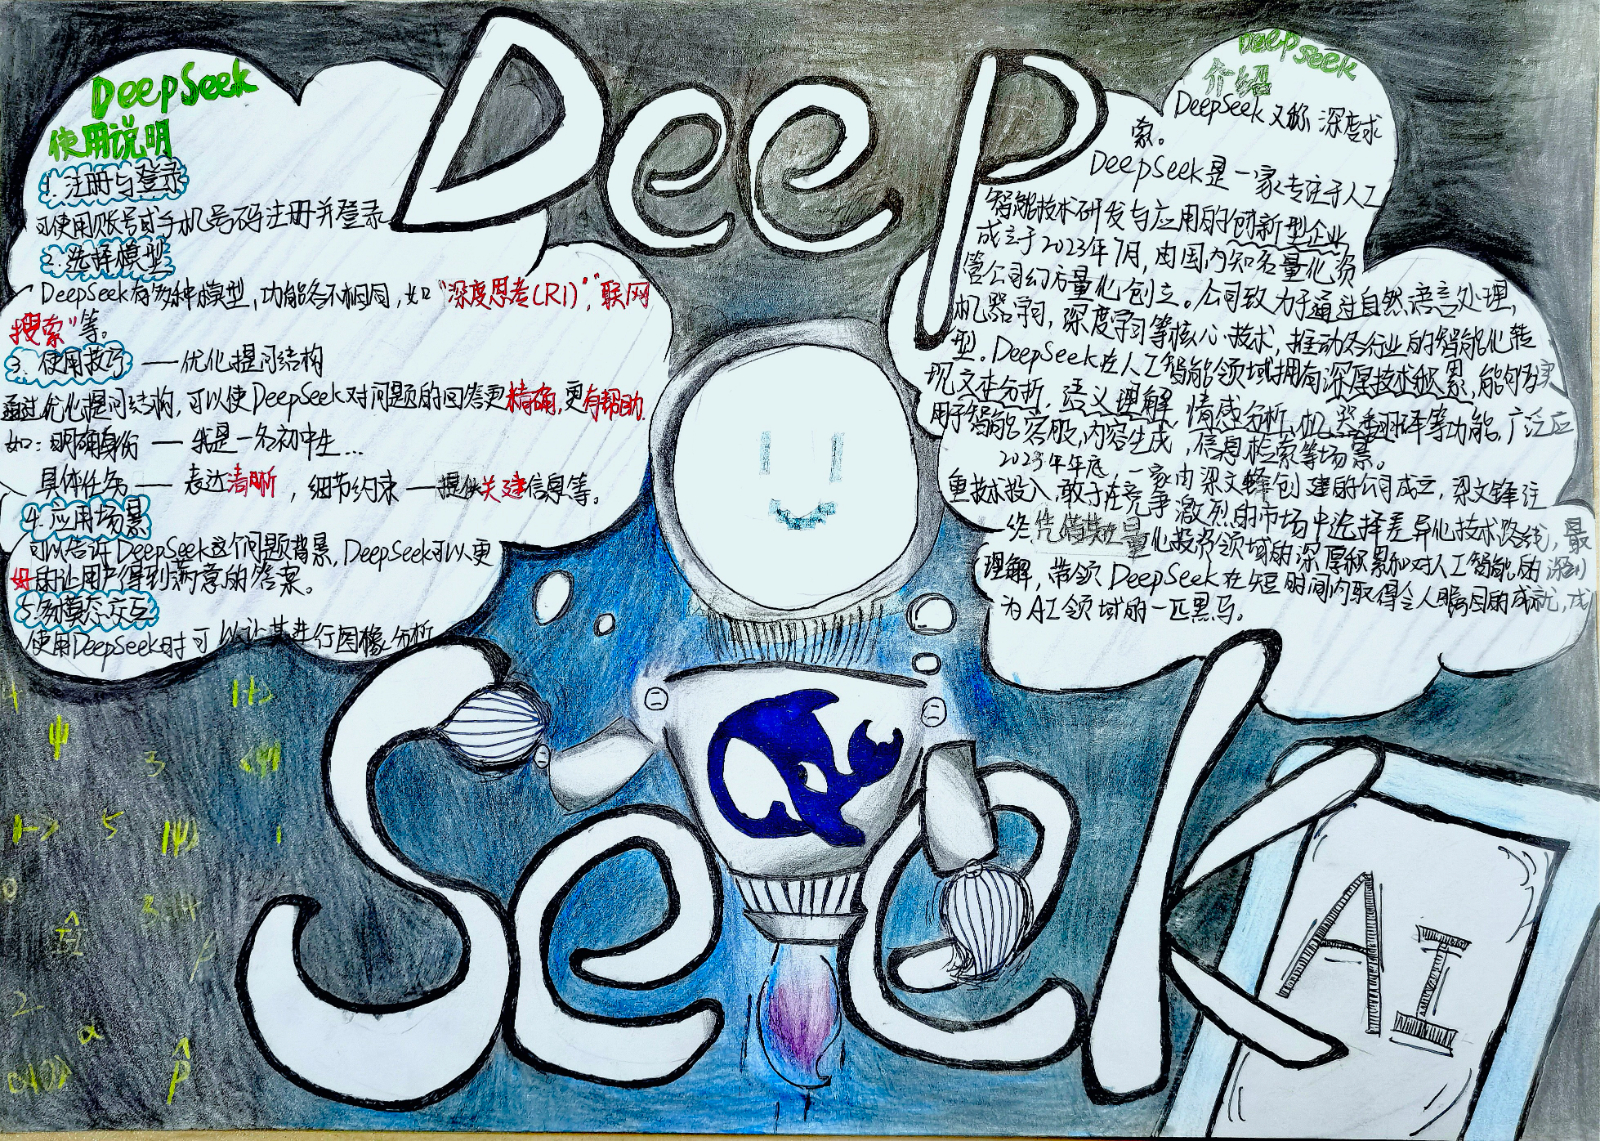 DeepSeek
使用说明
1.注册与登录
可使用账号或手机号码注册并登录
2.选择模型
DeepSeek有多种模型,功能各不相同,如"深度思考(R1)","联网
搜索"等。
3.使用技巧——优化提问结构
通过优化提问结构,可以使DeepSeek对问题的回答更精确,更有帮助.
如:明确身份——我是一名初中生...
具体任务——表达清晰,细节约束——提供关建信息等。
4.应用场景
可以告诉DeepSeek这个问题背景,DeepSeek可以更
好的让用户得到满意的答案。
5.多模态交互
使用DeepSeek时可以让其进行图像分析
Deep
Seek
DeepSeek
介绍
DeepSeek又称深度求
索。
DeepSeek是一家专注于人工
智能技术研发与应用的创新型企业
成立于2023年7月,由国内知名量化资
管公司幻方量化创立。公司致力于通过自然语言处理,
机器学习,深度学习等核心技术,推动各行业的智能化转
型。DeepSeek在人工智能领域拥有深厚技术积累,能够实
现文本分析,语义理解,情感分析,机器翻译等功能,广泛应
用于智能客服,内容生成,信息检索等场景。
2023年年底,一家由梁文锋创建的公司成立,梁文锋注
重技术投入,敢于在竞争激烈的市场中选择差异化技术路线,最
终凭借其在量化投资领域的深厚积累和对人工智能的深刻
理解,带领DeepSeek在短时间内取得令人瞩目的成就,成
为AI领域的一匹黑马。
AI
ψ
3
5
|ψ⟩
0
3.4
2
α
p̂